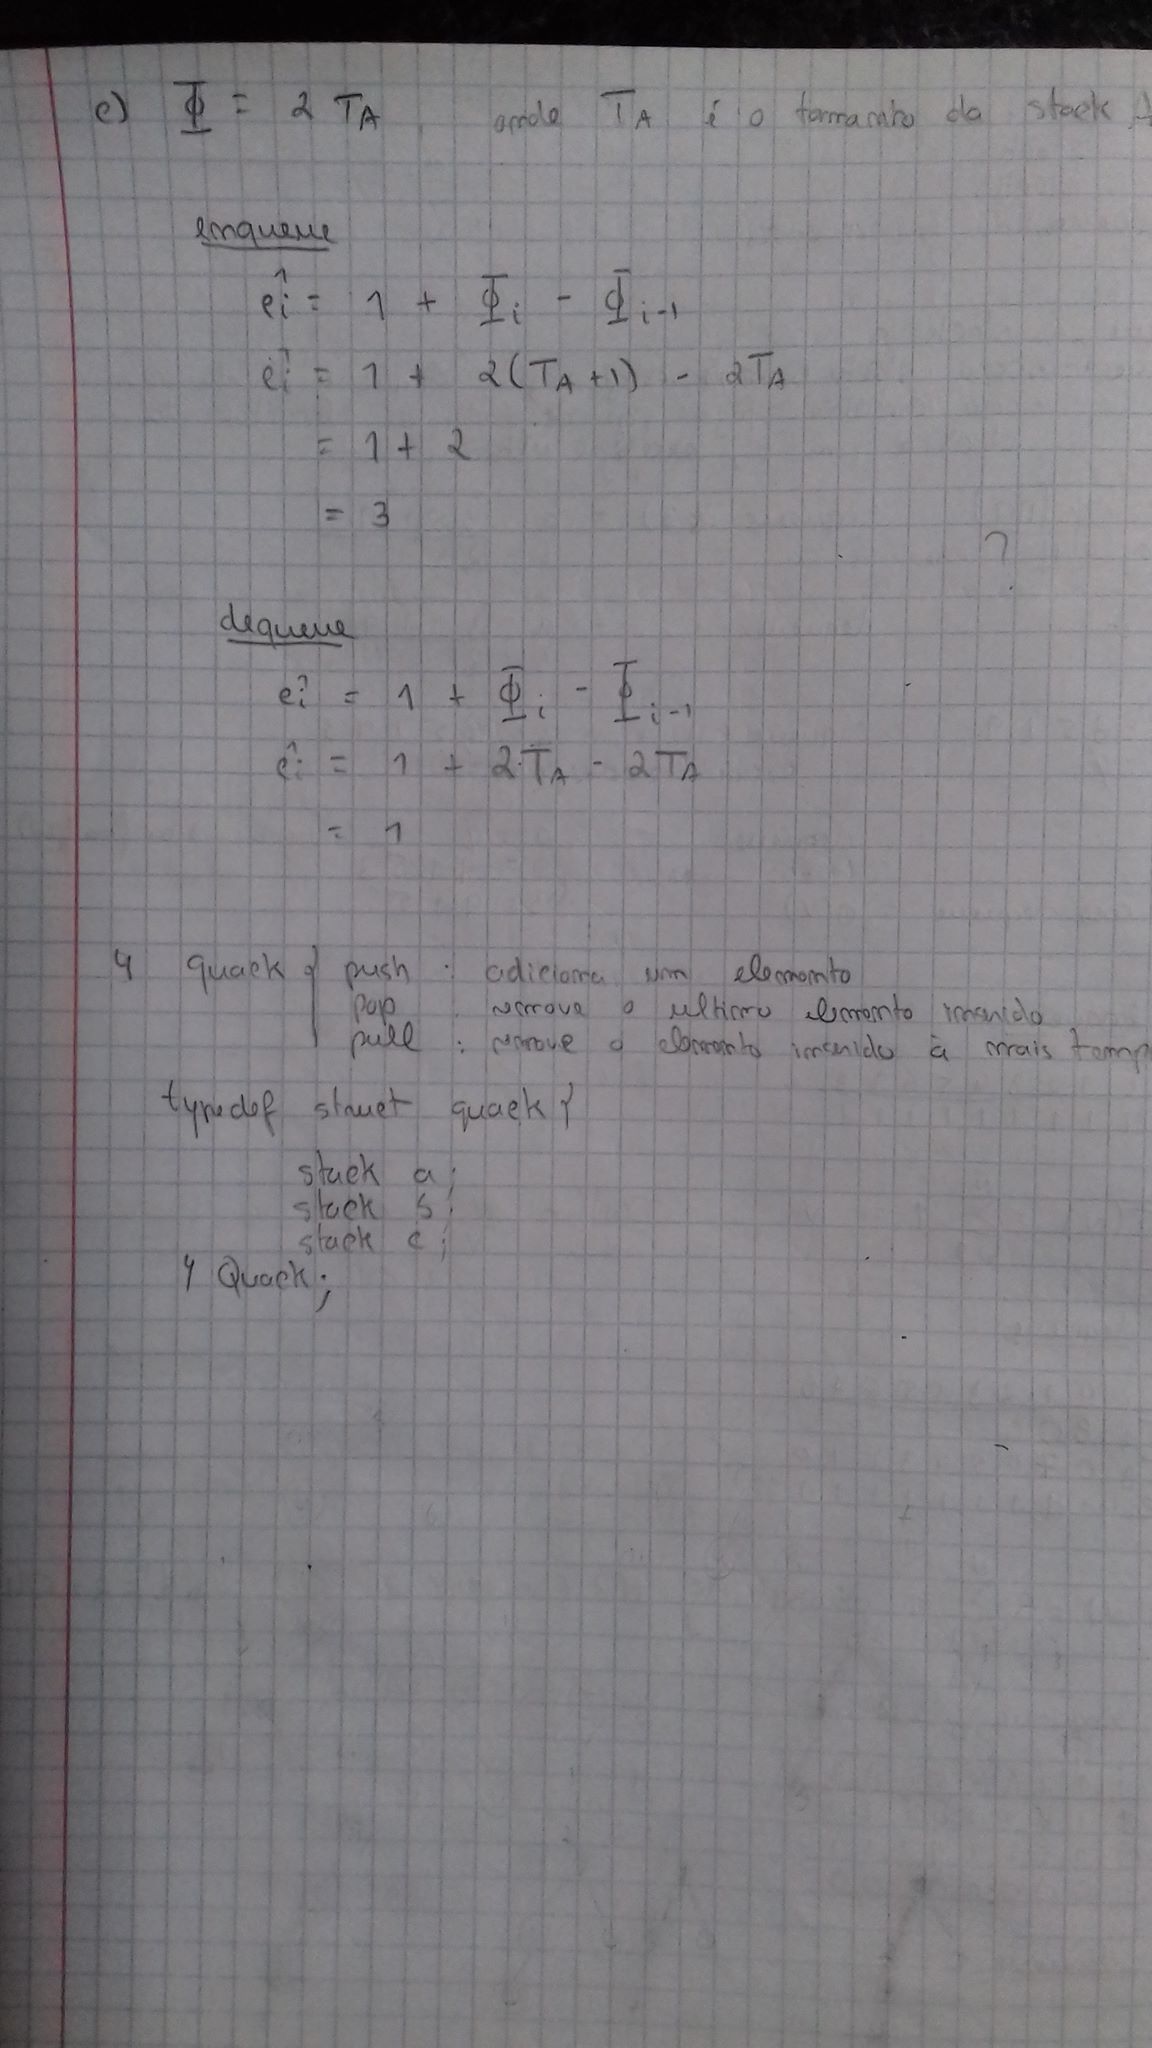 c) Φ = 2 T_A, onde T_A é o tamanho da stack A
enqueue
ĉi = 1 + Φ_i - Φ_i-1
ĉi = 1 + 2(T_A + 1) - 2T_A
= 1 + 2
= 3
?
dequeue
ĉi = 1 + Φ_i - Φ_i-1
ĉi = 1 + 2T_A - 2T_A
= 1
4 quack { push : adiciona um elemento
pop : remove o ultimo elemento inserido
pull : remove o elemento inserido à mais temp
typedef struct quack {
stack a;
stack b;
stack c;
} Quack;